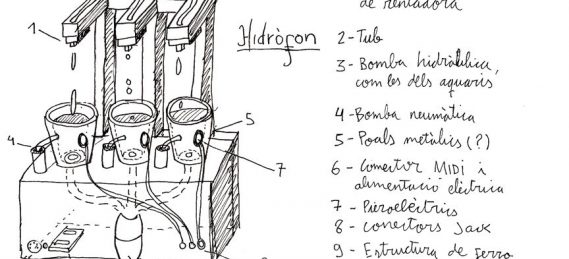 de rentadora
1
Hidròfon
2 - Tub
3 - Bomba hidràulica,
com les dels aquaris
4
4 - Bomba neumàtica
5
5 - Poals metàlics (?)
7
6 - Conector MIDI i
alimentació elèctrica
7 - Piezoelèctrics
8 - Conectors Jack
9 - Estructura de ferro